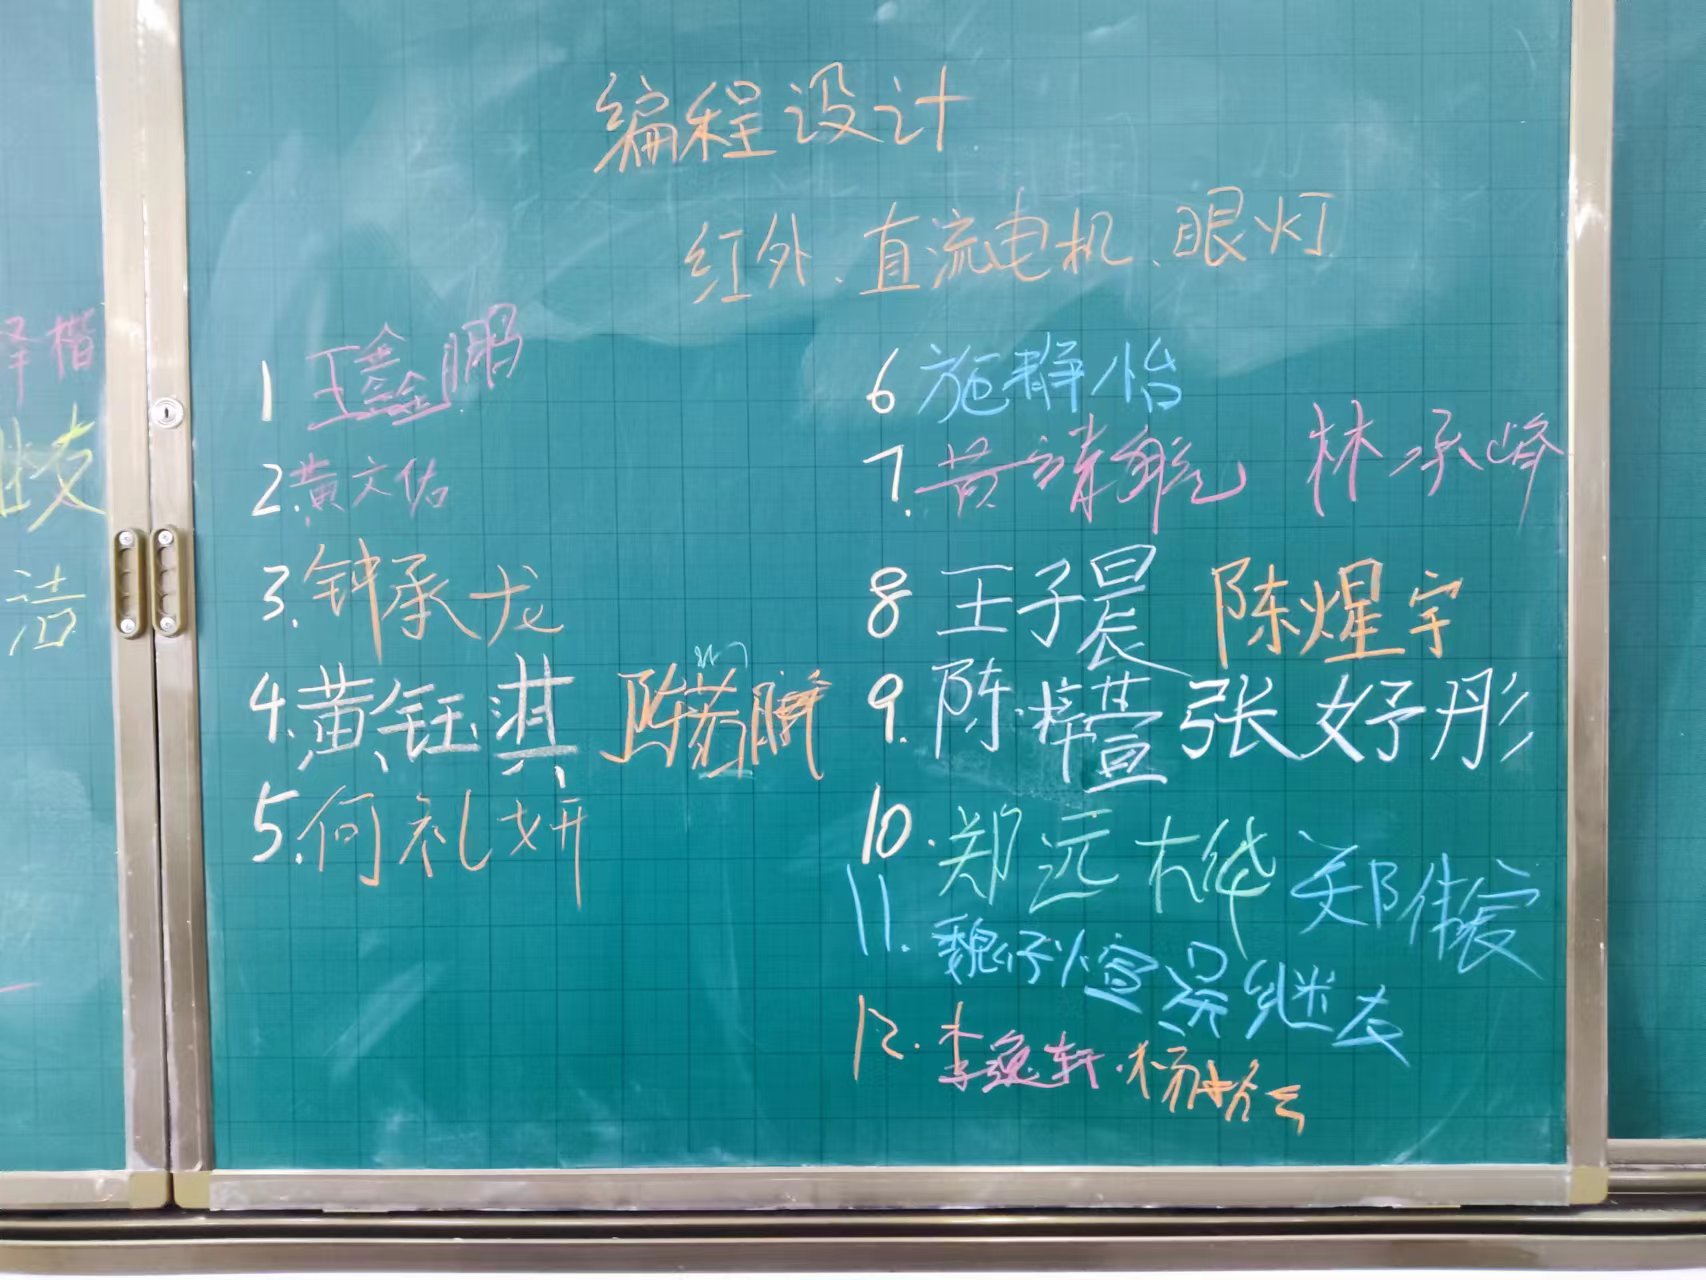 编程设计
红外、直流电机、眼灯
1 王鑫鹏
2.黄文佑
3.钟承龙
4.黄钰淇 陈芮
5.何礼妍
6 施静怡
7.黄靖航 林承峰
8 王子晨 陈煋宇
9.陈梓萱 张妤彤
10.郑远桦 郑伟宸
11.魏子煊 吴继友
12.李逸轩.杨
楷
洁